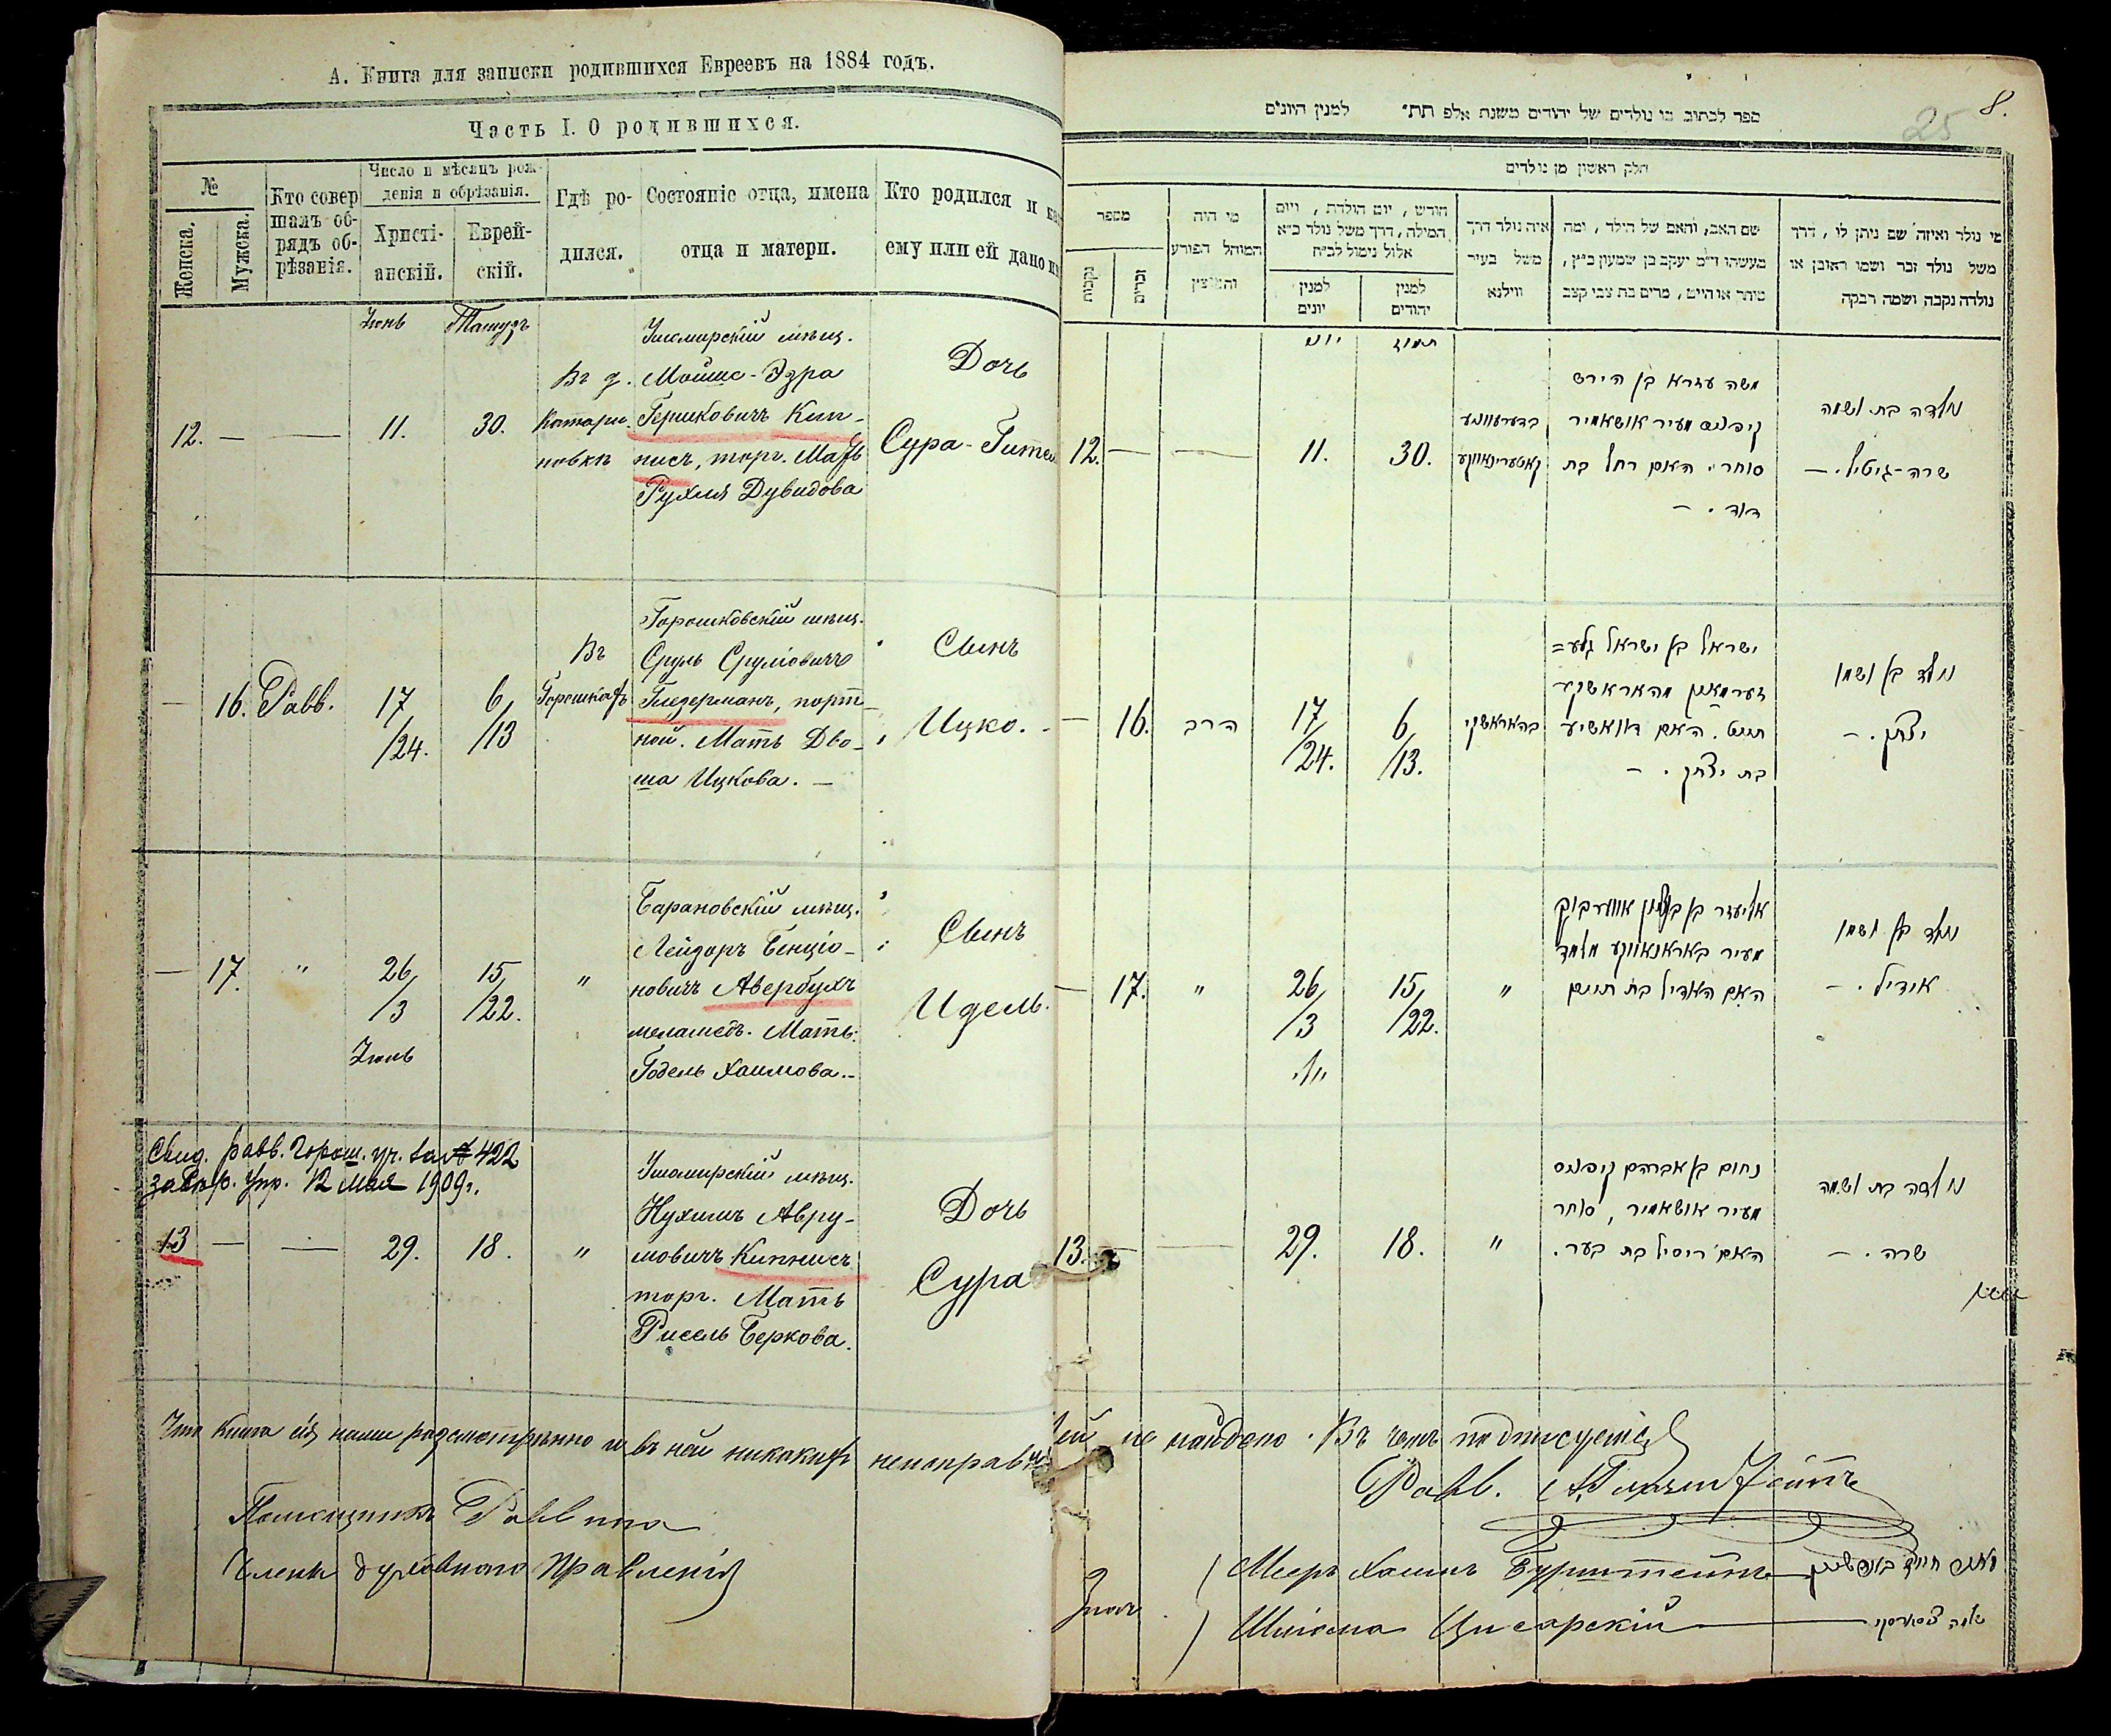 А. Книга для записки родившихся Евреевъ на 1884 годъ.
Часть I. О родившихся.
№
Женска.
Мужска.
Кто совер
шалъ об-
рядъ об-
рѣзанія.
Число и мѣсяцъ рож-
денія и обрѣзанія.
Христі-
анскій.
Еврей-
скій.
Гдѣ ро-
дился.
Состояніе отца, имена
отца и матери.
Кто родился и
ему или ей дано
Іюнь
Тамузъ
12.
—
—
11.
30.
Въ д.
Катари
новкѣ
Ушомирскій мѣщ.
Мойше-Эзра
Гершковичъ Кип-
нисъ, торг. Мать
Рухля Дувидова
Дочь
Сура-Гитель
—
16.
Равв.
17/
/24.
6/
/13
Въ
Горошкахъ
Горошковскій мѣщ.
Сруль Сруліовичъ
Гледерманъ, порт-
ной. Мать Дво-
ша Ицкова. —
Сынъ
Ицко. -
—
17.
"
26/
/3
Іюль
15/
/22.
"
Барановскій мѣщ.
Лейзоръ Бенціо-
новичъ Авербухъ
меламедъ. Мать:
Годель Хаимова. -
Сынъ
Идель.
Свид. равв. Горош. уч. за № 422
12 мая 1909 г.
13
—
—
29.
18.
"
Ушомирскій мѣщ.
Нухимъ Авру-
мовичъ Кипнисъ
торг. Мать
Рисель Беркова.
Дочь
Сура
Что книга сія нами разсмотрѣнно и въ ней никакихъ неисправ
Помощникъ Раввина
Члены духовного Правленія
25
8.
ספר לכתוב בו נולדים של יהודים משנת אלפ תת״ למנין היונים
חלק ראשון מן נולדים
מספר
נקבות
זכרים
מי היה
המוהל הפורע
והמוצץ
חודש, יום הולדת, ויום
המילה, דרך משל נולד כ״א
אלול נימול לכ״ח
למנין
יונים
למנין
יהודים
איה נולד דרך
משל בעיר
ווילנא
שם האב, והאם של הילד, ומה
מעשהו ד״מ יעקב בן שמעון כ״ץ,
סוחר או חייט, מרים בת צבי קצב
מי נולד ואיזה שם ניתן לו, דרך
משל נולד זכר ושמו ראובן או
נולדה נקבה ושמה רבקה
יוני
תמוז
12.
—
—
11.
30.
בדערעוונע
קאטערינאווקע
משה עזרא בן הירש
קיפניס מעיר אושאמיר
סוחר. האם רחל בת
דוד. -
נולדה בת ושמה
שרה-גיטיל. —
—
16.
הרב
17/
/24.
6/
/13.
בהאראשקי
ישראל בן ישראל גלע=
דערמאן מהאראשקי
חייט. האם דוואשיע
בת יצחק. -
נולד בן ושמו
יצחק. -
—
17.
"
26/
/3
יולי
15/
/22.
"
אליעזר בן בנציון אווערבוך
מעיר באראנאווקע מלמד
האם האדיל בת חיים
נולד בן ושמו
אידיל. -
13.
—
—
29.
18.
"
נחום בן אברהם קיפניס
מעיר אושאמיר, סוחר
האם ריסיל בת בער.
נולדה בת ושמה
שרה. -
ей не найдено. Въ чемъ подписуемся
Равв.
Мееръ Хаимъ Бурштейнъ
Шліома Цисарскій